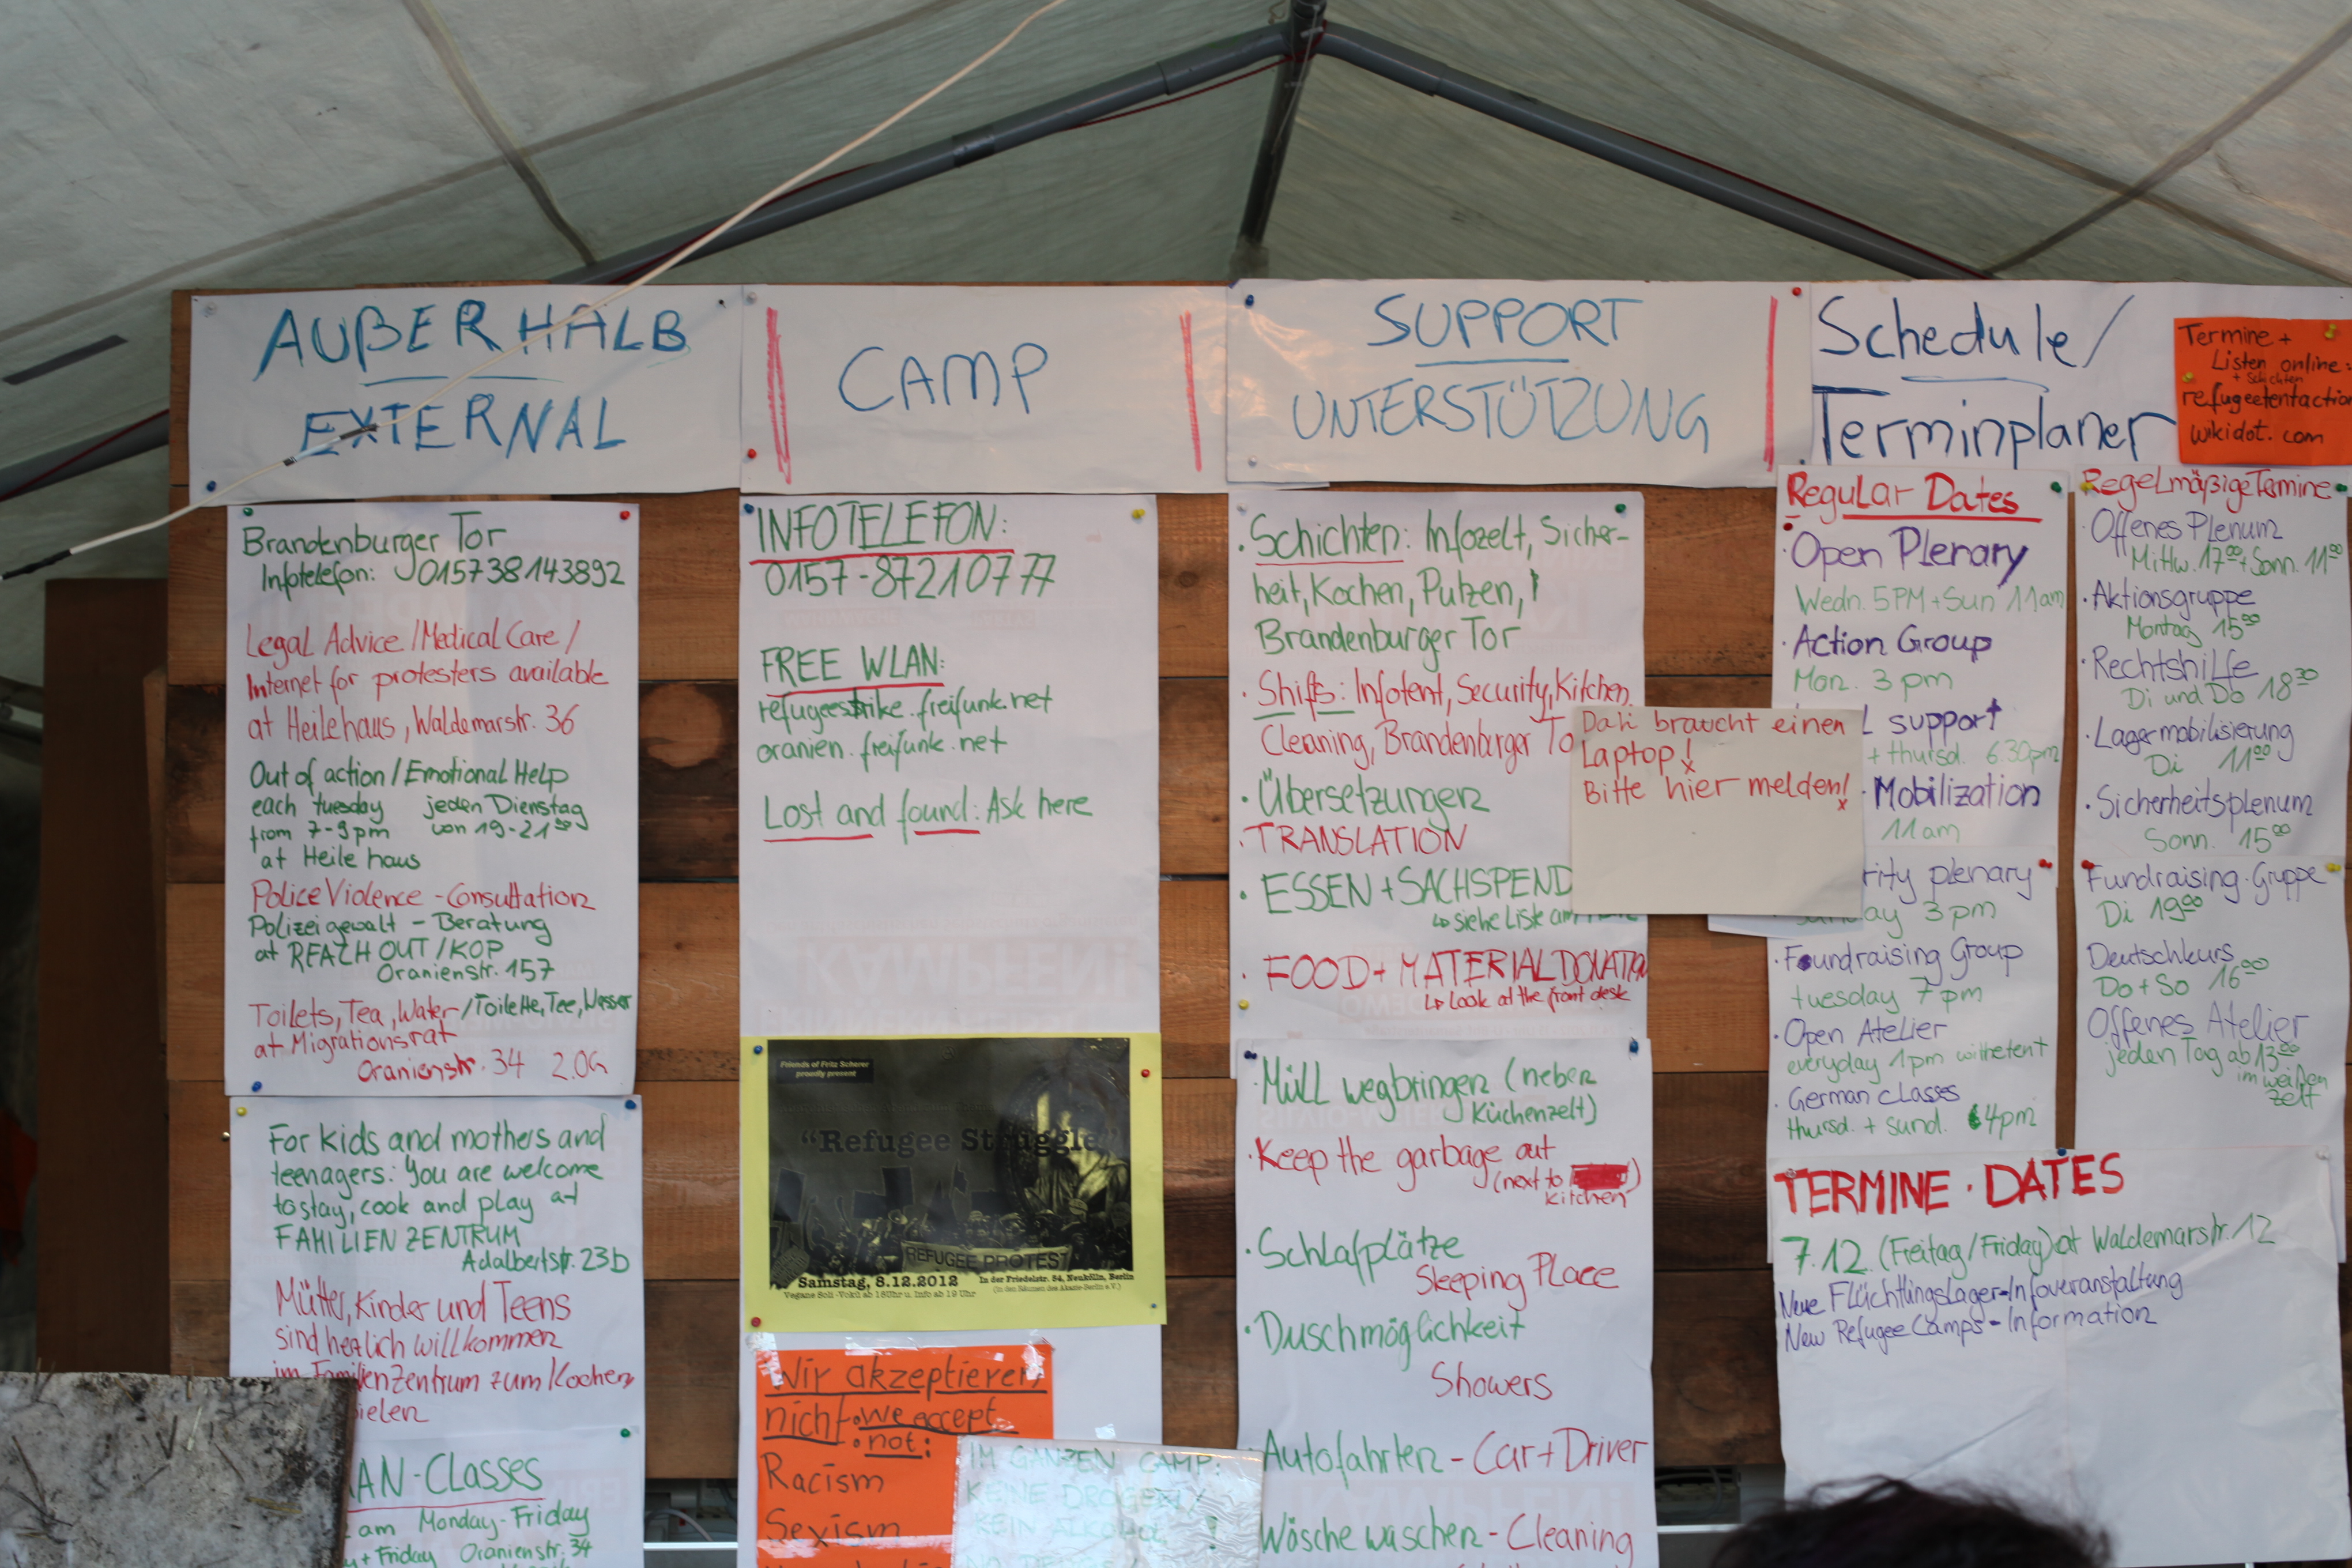 AUßERHALB
EXTERNAL
CAMP
SUPPORT
UNTERSTÜTZUNG
Schedule/
Terminplaner
Termine +
Listen online:
+ Schichten
refugeetentaction
wikidot.com
Brandenburger Tor
Infotelefon: 015738143892
Legal Advice/Medical Care/
Internet for protesters available
at Heilehaus, Waldemarstr. 36
Out of action/Emotional Help
each tuesday jeden Dienstag
from 7-9pm von 19-21⁰⁰
at Heile haus
Police Violence - Consultation
Polizeigewalt - Beratung
at REACH OUT/KOP
Oranienstr. 157
Toilets, Tea, Water/Toilette, Tee, Wasser
at Migrationsrat
Oranienstr. 34 2.OG
For kids and mothers and
teenagers: You are welcome
to stay, cook and play at
FAMILIENZENTRUM
Adalbertstr. 23b
Mütter, Kinder und Teens
sind herzlich willkommen
im Familienzentrum zum Kochen
ielen
AN-Classes
am Monday-Friday
+ Friday Oranienstr. 34
INFOTELEFON:
0157-87210777
FREE WLAN:
refugeestrike.freifunk.net
oranien.freifunk.net
Lost and found: Ask here
Friends of Fritz Scherer
proudly present
"Refugee Struggle"
REFUGEE PROTEST
Samstag, 8.12.2012 In der Friedelstr. 54, Neukölln, Berlin
Vegane Soli-Vokü ab 18Uhr u. Info ab 19 Uhr (in den Räumen des Akazie-Berlin e.V.)
Wir akzeptieren
nicht • we accept
• not:
Racism
Sexism
IM GANZEN CAMP:
KEINE DROGEN!
KEIN ALCOHOL !
· Schichten: Infozelt, Sicher-
heit, Kochen, Putzen,
Brandenburger Tor
· Shifts: Infotent, Security, Kitchen,
Cleaning, Brandenburger To
· Übersetzungen
· TRANSLATION
· ESSEN + SACHSPEND
↳ siehe Liste am
· FOOD + MATERIAL DONATION
↳ Look at the front desk
Dali braucht einen
Laptop!
Bitte hier melden!
· Müll wegbringen (neben
Küchenzelt)
· Keep the garbage out
(next to
kitchen)
· Schlafplätze
Sleeping Place
· Duschmöglichkeit
Showers
· Autofahrten - Car + Driver
Wäsche waschen - Cleaning
Regular Dates
· Open Plenary
Wedn. 5PM + Sun 11am
· Action Group
Mon. 3 pm
L support
+ thursd. 6.30pm
· Mobilization
11am
rity plenary
Sunday 3 pm
· Foundraising Group
tuesday 7 pm
· Open Atelier
everyday 1pm withetent
· German classes
thursd. + sund. 4pm
Regelmäßige Termine
· Offenes Plenum
Mittw. 17⁰⁰ + Sonn. 11⁰⁰
· Aktionsgruppe
Montag 15⁰⁰
· Rechtshilfe
Di und Do 18³⁰
· Lagermobilisierung
Di 11⁰⁰
· Sicherheitsplenum
Sonn. 15⁰⁰
Fundraising-Gruppe
Di 19⁰⁰
Deutschkurs
Do + So 16⁰⁰
Offenes Atelier
jeden Tag ab 13⁰⁰
im weißen
Zelt
TERMINE · DATES
7.12. (Freitag/Friday) at Waldemarstr. 12
Neue Flüchtlingslager-Infoveranstaltung
New Refugee Camps - Information